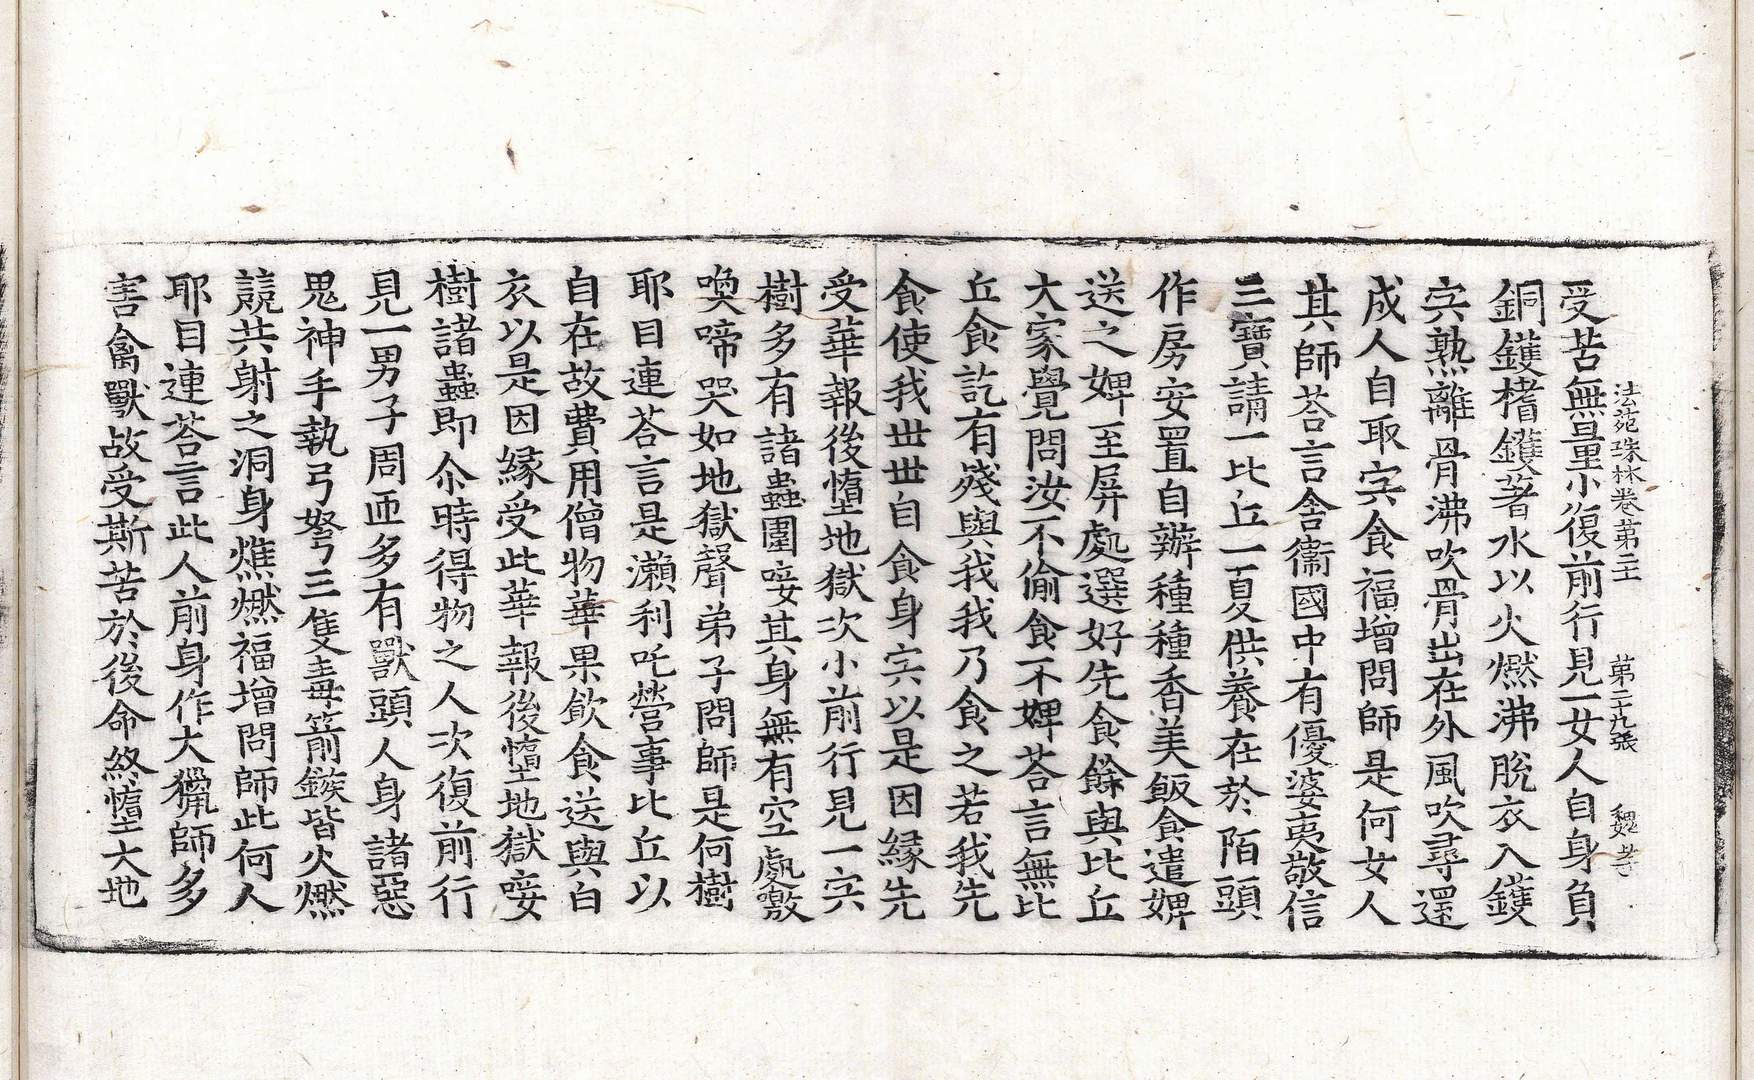 受苦無量小復前行見一女人自身負
法苑珠林卷第二十 第二十九張 魏孝
銅鑊楮鑊著水以火燃沸脫衣入鑊
宍熟離骨沸吹骨出在外風吹尋還
成人自取宍食福增問師是何女人
其師荅言舍衞國中有優婆夷敬信
三寶請一比丘一夏供養在於陌頭
作房安置自辦種種香美飯食遣婢
送之婢至屏處選好先食餘與比丘
大家覺問汝不偷食不婢荅言無比
丘食訖有殘與我我乃食之若我先
食使我世世自食身宍以是因緣先
受華報後墮地獄次小前行見一宍
樹多有諸蟲圍唼其身無有空處噭
喚啼哭如地獄聲弟子問師是何樹
耶目連荅言是瀨利吒營事比丘以
自在故費用僧物華果飲食送與白
衣以是因緣受此華報後墮地獄唼
樹諸蟲即尒時得物之人次復前行
見一男子周匝多有獸頭人身諸惡
鬼神手執弓弩三隻毒箭鏃皆火燃
競共射之洞身燋燃福增問師此何人
耶目連荅言此人前身作大獵師多
害禽獸故受斯苦於後命終墮大地